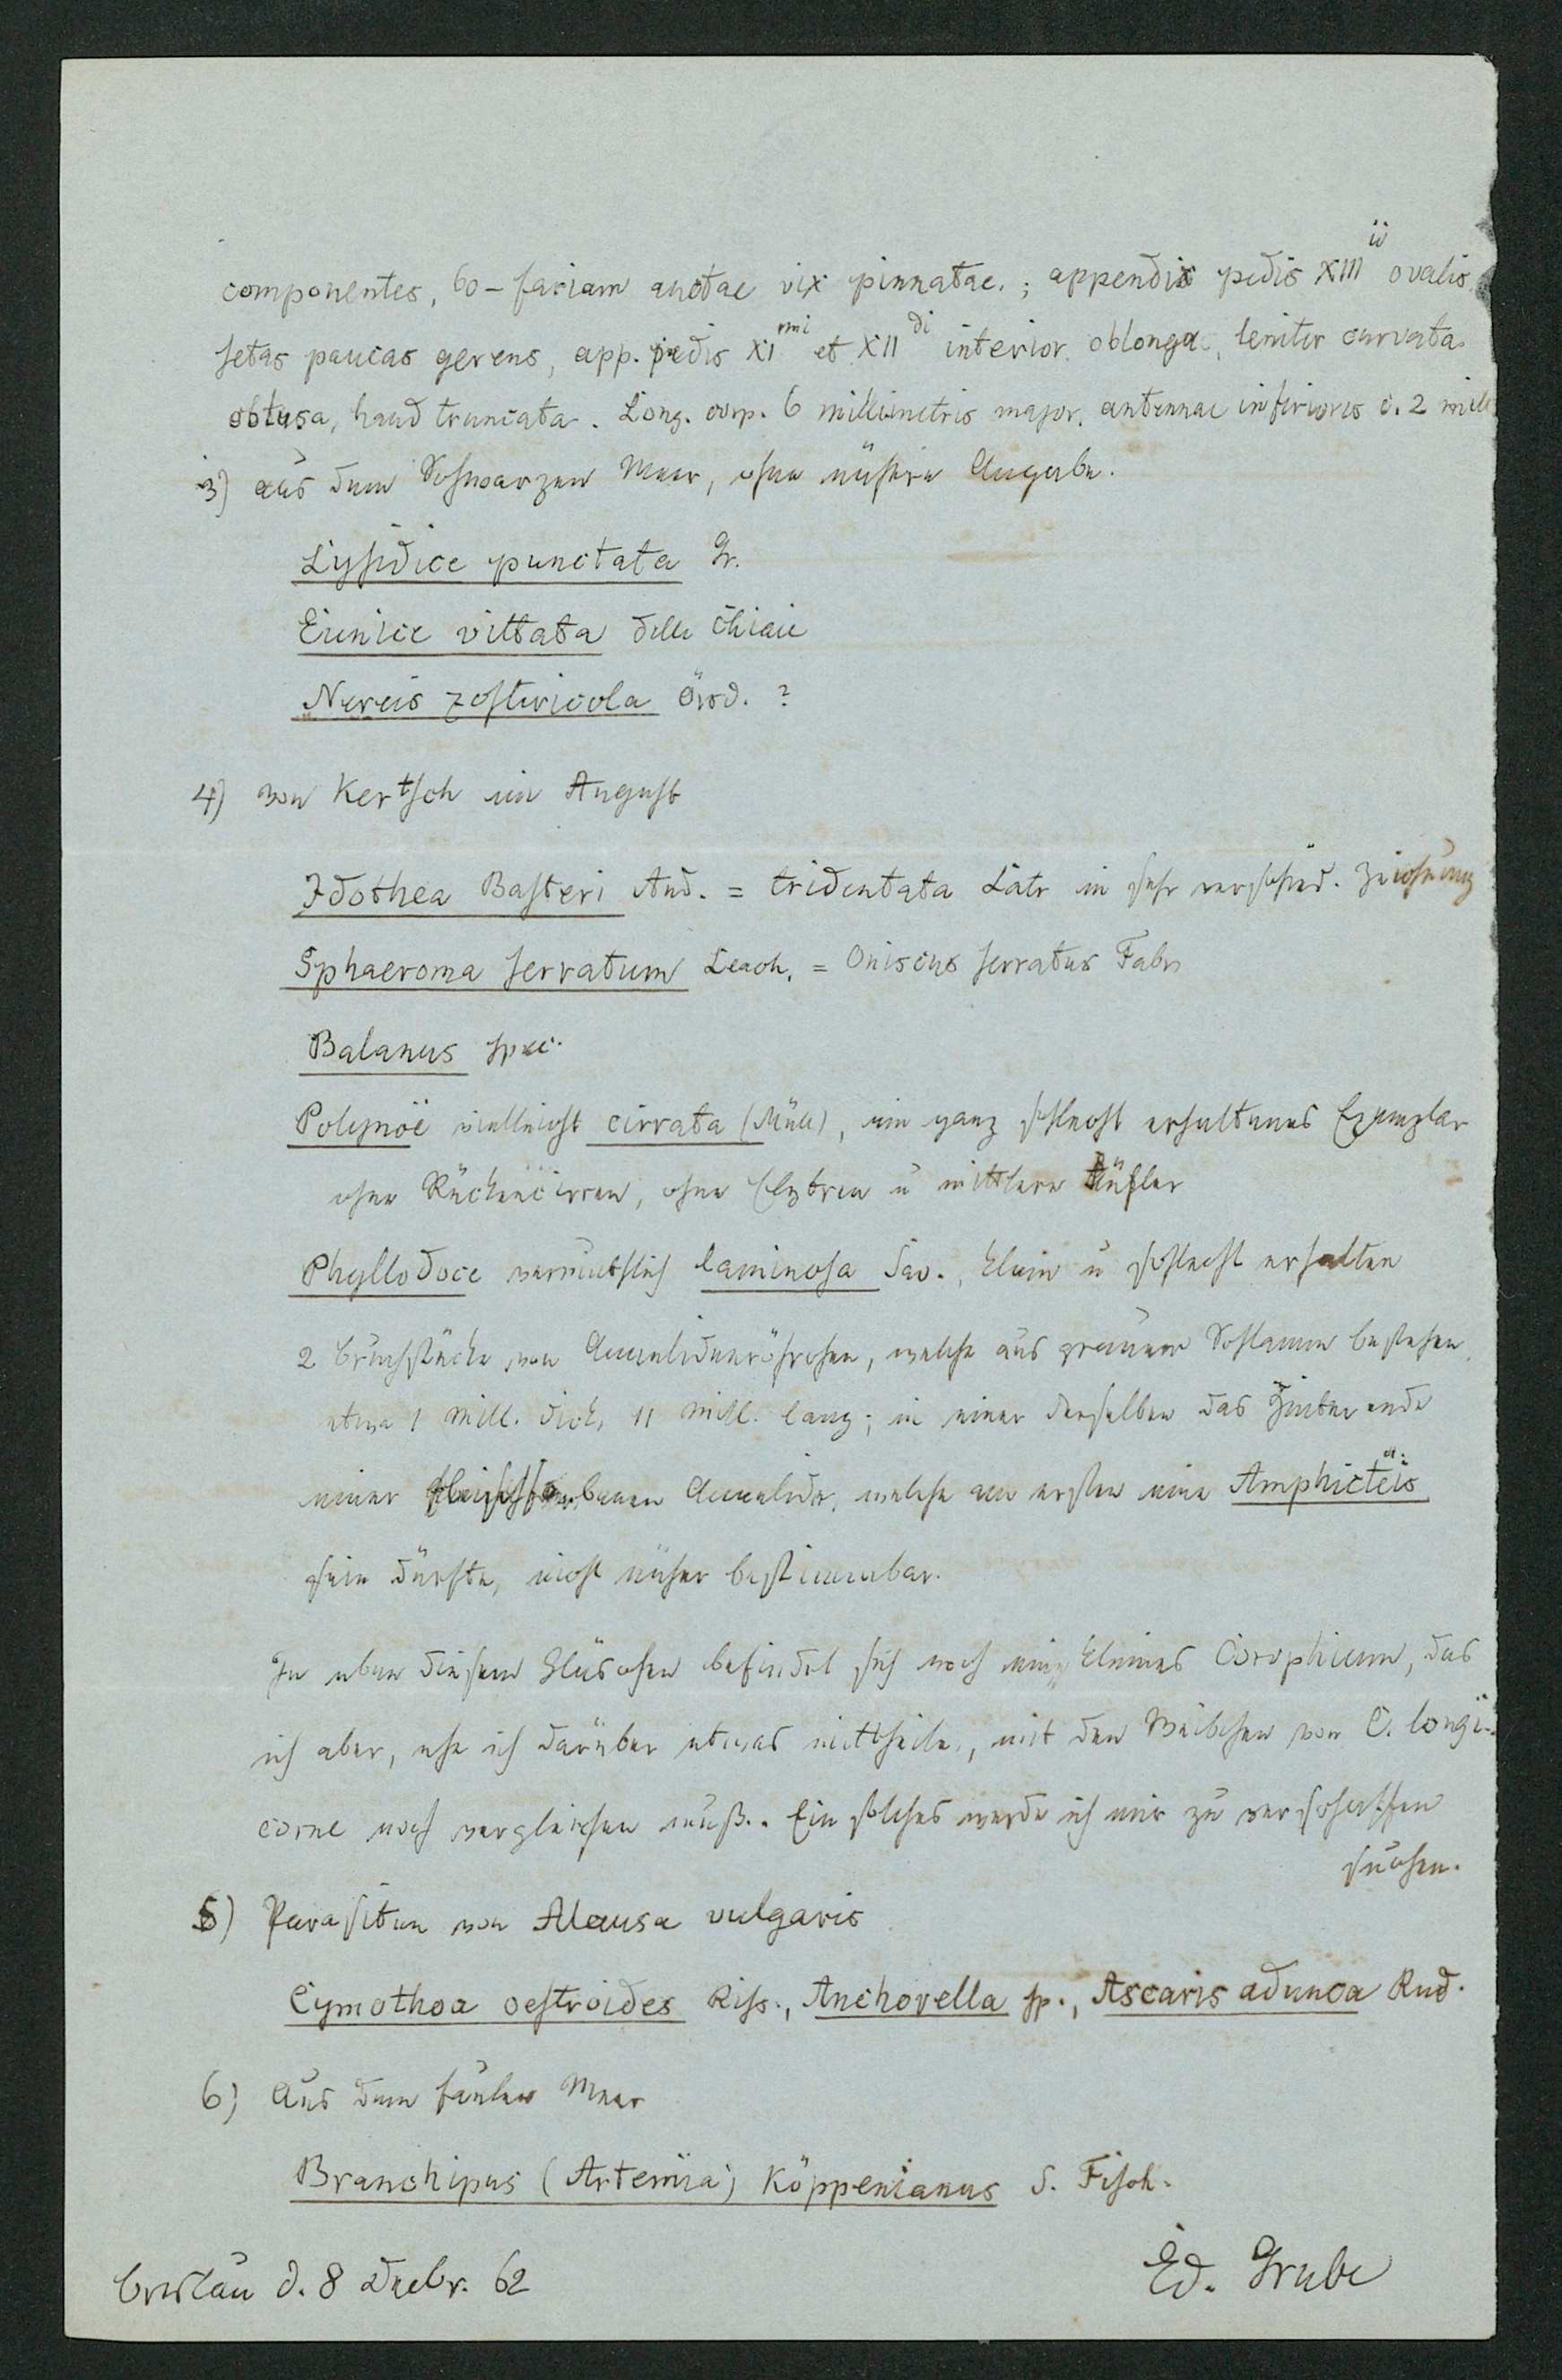 componentes, 60-fariam auctae vix pinnatae.; appendix pedis XIII ii ovalis,
setas paucas gerens, app. pedis XI mi et XII di interior. oblonga, leniter curvata
obtusa, haud truncata. Long. corp. 6 millimetris major. antennae inferiores c. 2 mill
3) aus dem Schwarzen Meer, ohne nähere Angabe.
Lysidice punctata Gr.
Eunice vittata delle Chiaie
Nereis zostericola Örsd. ?
4) von Kertsch im August
Idothea Basteri Aud. = tridentata Latr in sehr verschied. Zeichnung
Sphaeroma serratum Leach. = Oniscus serratus Fabr
Balanus spec.
Polynoë vielleicht cirrata (Müll), ein ganz schlecht erhaltenes Exemplar
ohne Rückencirren, ohne Elytren u mittleren Fühler
Phyllodoce vermuthlich laminosa Sav., klein u schlecht erhalten
2 Bruchstücke von Annelidenröhrchen, welche aus grauem Schlamm bestehen
etwa 1 mill. dick, 11 mill. lang; in einer derselben das Hinterende
einer fleischfarbenen Annelide, welche am ersten eine Amphicteis
sein dürfte, nicht näher bestimmbar.
In eben diesem Gläschen befindet sich noch ein kleines Corophium, das
ich aber, ehe ich darüber etwas mittheile, mit den Weibchen von C. longi-
corne noch vergleichen muß. Ein solches werde ich mir zu verschaffen
suchen.
5) Parasiten von Alausa vulgaris
Cymothoa oestroides Riss., Anchorella sp., Ascaris adunca Rud.
6) Aus dem faulen Meer
Branchipus (Artemia) Köppenianus S. Fisch.
Breslau d. 8 Decbr. 62
Ed. Grube